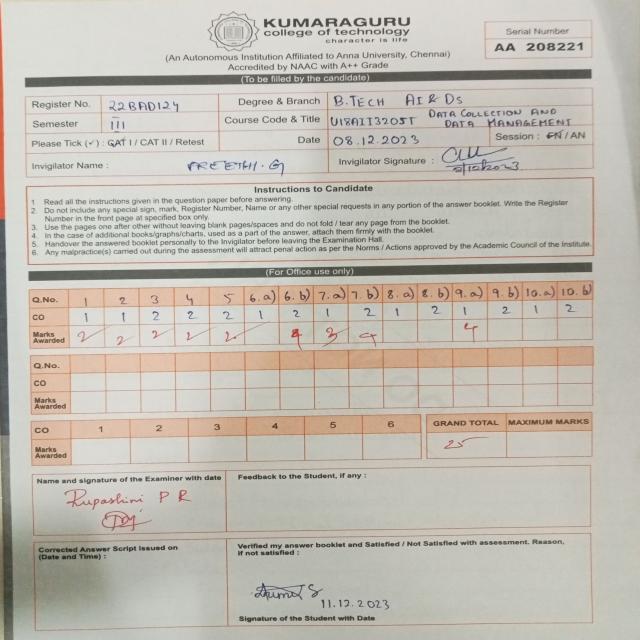 KUMARAGURU
college of technology
character is life
(An Autonomous Institution Affiliated to Anna University, Chennai)
Accredited by NAAC with A++ Grade
Serial Number
AA 208221
(To be filled by the candidate)
Register No. 22BAD124 Degree & Branch B.TECH AI & DS
Semester III Course Code & Title U18AIT3205T DATA COLLECTION AND DATA MANAGEMENT
Please Tick (✓) : CAT I / CAT II / Retest Date 08.12.2023 Session : FN / AN
Invigilator Name : PREETHI.G Invigilator Signature :
Instructions to Candidate
1 Read all the instructions given in the question paper before answering.
2. Do not include any special sign, mark, Register Number, Name or any other special requests in any portion of the answer booklet. Write the Register
Number in the front page at specified box only.
3. Use the pages one after other without leaving blank pages/spaces and do not fold / tear any page from the booklet.
4. In the case of additional books/graphs/charts, used as a part of the answer, attach them firmly with the booklet.
5. Handover the answered booklet personally to the Invigilator before leaving the Examination Hall.
6. Any malpractice(s) carried out during the assessment will attract penal action as per the Norms / Actions approved by the Academic Council of the Institute.
(For Office use only)
Q.No. 1 2 3 4 5 6.a) 6.b) 7.a) 7.b) 8.a) 8.b) 9.a) 9.b) 10.a) 10.b)
CO 1 1 2 2 2 1 2 1 2 1 2 1 2 1 2
Marks Awarded 2 2 2 2 2 4 3 4 4
Q.No.
CO
Marks Awarded
CO 1 2 3 4 5 6 GRAND TOTAL MAXIMUM MARKS
Marks Awarded 25
Name and signature of the Examiner with date
Feedback to the Student, if any :
Rupashini P R
Corrected Answer Script issued on
(Date and Time) :
Verified my answer booklet and Satisfied / Not Satisfied with assessment. Reason,
if not satisfied :
11.12.2023
Signature of the Student with Date